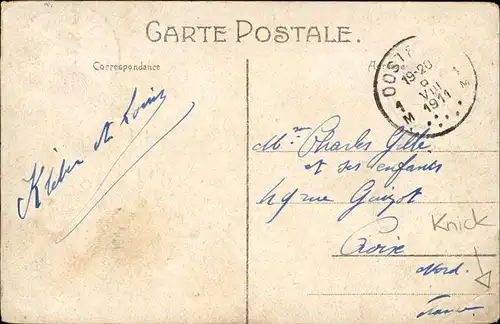 CARTE POSTALE.
Correspondance
Adresse
OOSTE
19-20
9
VIII
1911
1 M
1 M
Kléber et Louis
Mme Charles Gille
et ses enfants
49 rue Guizot
Croix
Nord.
France
Knick